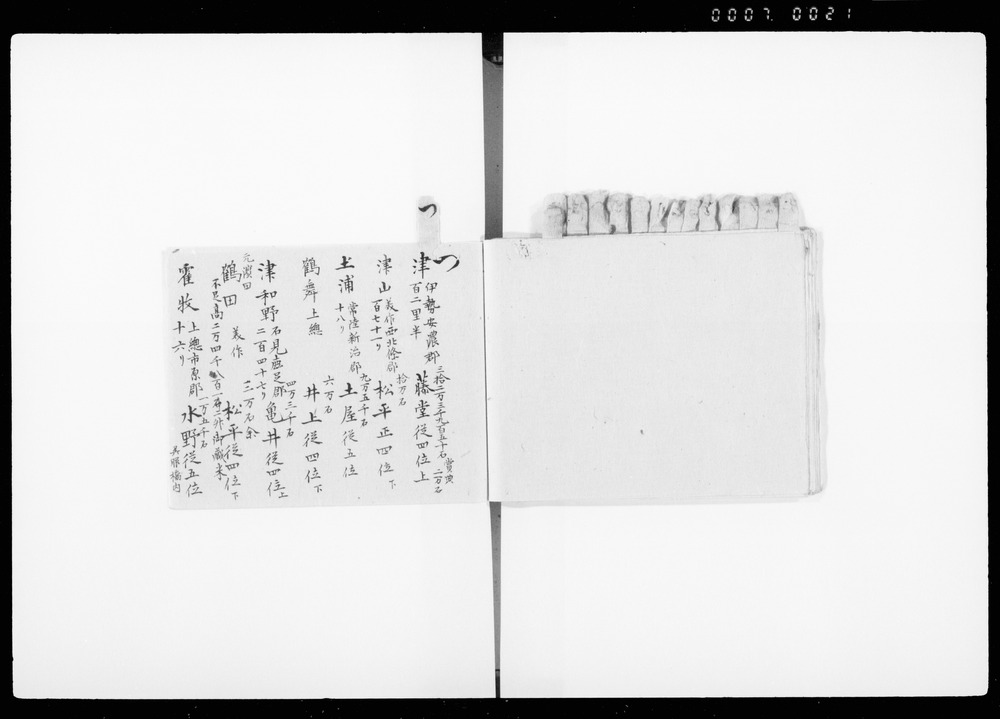 0007. 0021
つ
つ
津 伊勢安濃郡 百二里半 三拾二万三千九百五十石 賞典二万石 藤堂従四位上
津山 美作西北條郡 百七十一り 拾万石 松平正四位下
土浦 常陸新治郡 十八り 九万五千石 土屋従五位
鶴舞 上總 六万石 井上従四位下
津和野 石見鹿足郡 二百四十七り 四万三千石 亀井従四位上
元濱田 鶴田 美作 三万石余 松平従四位下
不足高二万四千八百 石
霍牧 上總市原郡 十六り 一万五千石 水野従五位
呉服橋内